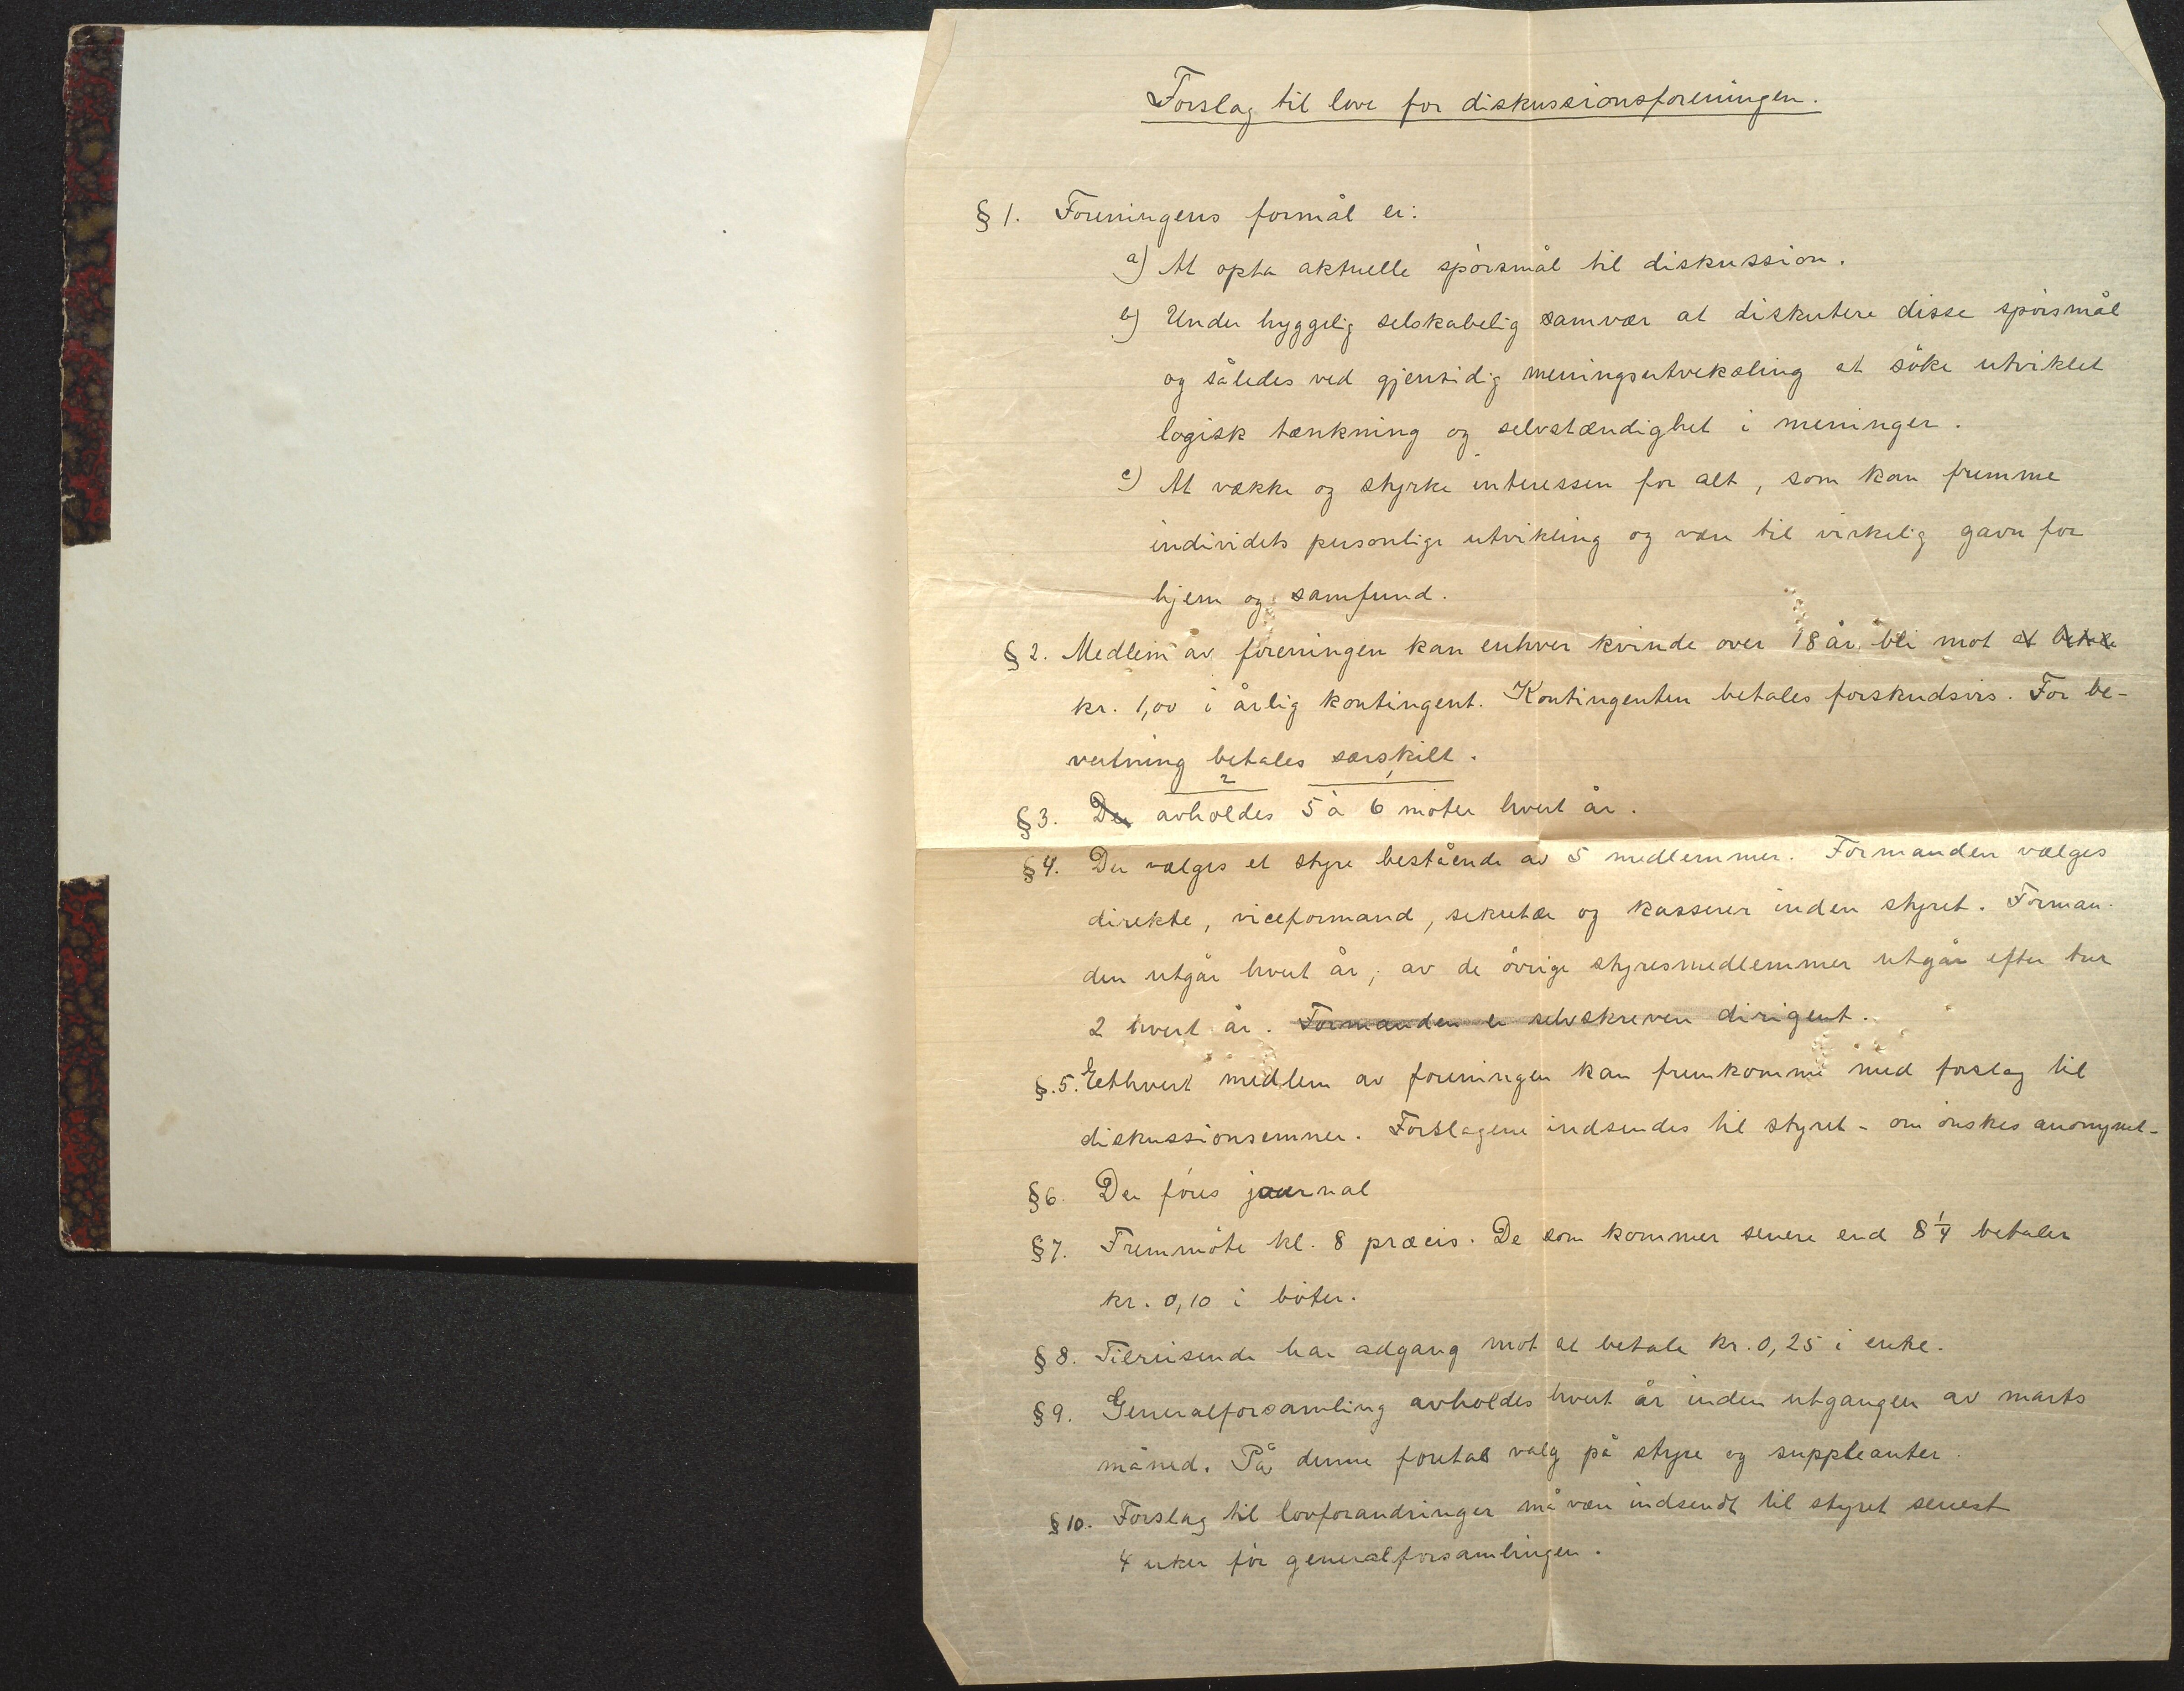 Forslag til love for diskussionsforeningen.
§ 1. Foreningens formål er:
a) At opta aktuelle spörsmål til diskussion.
b) Under hyggelig selskabelig samvær at diskutere disse spörsmål
og således ved gjensidig meningsutveksling at söke utviklet
logisk tænkning og selvstændighet i meninger.
c) At vække og styrke interessen for alt, som kan fremme
individets personlige utvikling og være til virkelig gavn for
hjem og samfund.
§ 2. Medlem av foreningen kan enhver kvinde over 18 år bli mot at betale
kr. 1,00 i årlig kontingent. Kontingenten betales forskudsvis. For be-
vertning betales særskilt.
2 1
§ 3. Der avholdes 5 à 6 möter hvert år.
§ 4. Der vælges et styre bestående av 5 medlemmer. Formanden vælges
direkte, viceformand, sekretær og kasserer inden styret. Forman-
den utgår hvert år; av de övrige styresmedlemmer utgår efter tur
2 hvert år. Formanden er selvskreven dirigent.
§.5. Ethvert medlem av foreningen kan fremkomme med forslag til
diskussionsemner. Forslagene indsendes til styret - om önskes anonymt -
§ 6. Der föres journal
§ 7. Fremmöte kl. 8 præcis. De som kommer senere end 8 1/4 betaler
kr. 0,10 i böter.
§ 8. Tilreisende har adgang mot at betale kr. 0,25 i entre.
§ 9. Generalforsamling avholdes hvert år inden utgangen av marts
måned. På denne foretas valg på styre og suppleanter.
§ 10. Forslag til lovforandringer må være indsendt til styret senest
4 uker för generalforsamlingen.